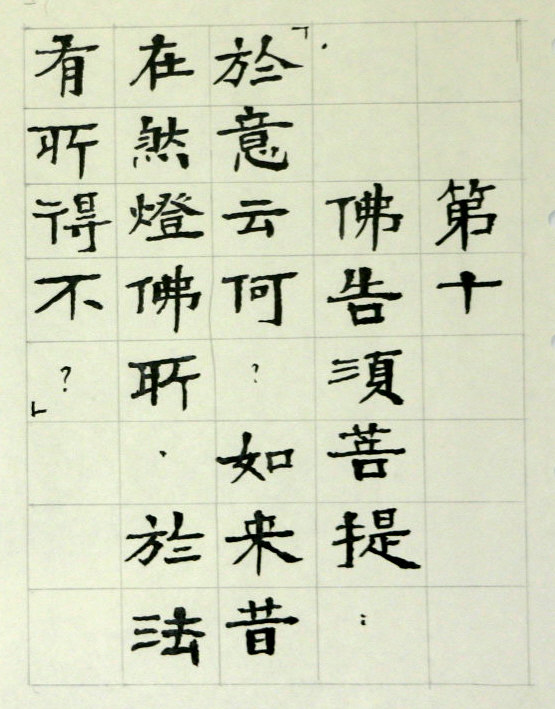 第十
佛告須菩提：
「於意云何？如来昔
在然燈佛所．於法
有所得不？」